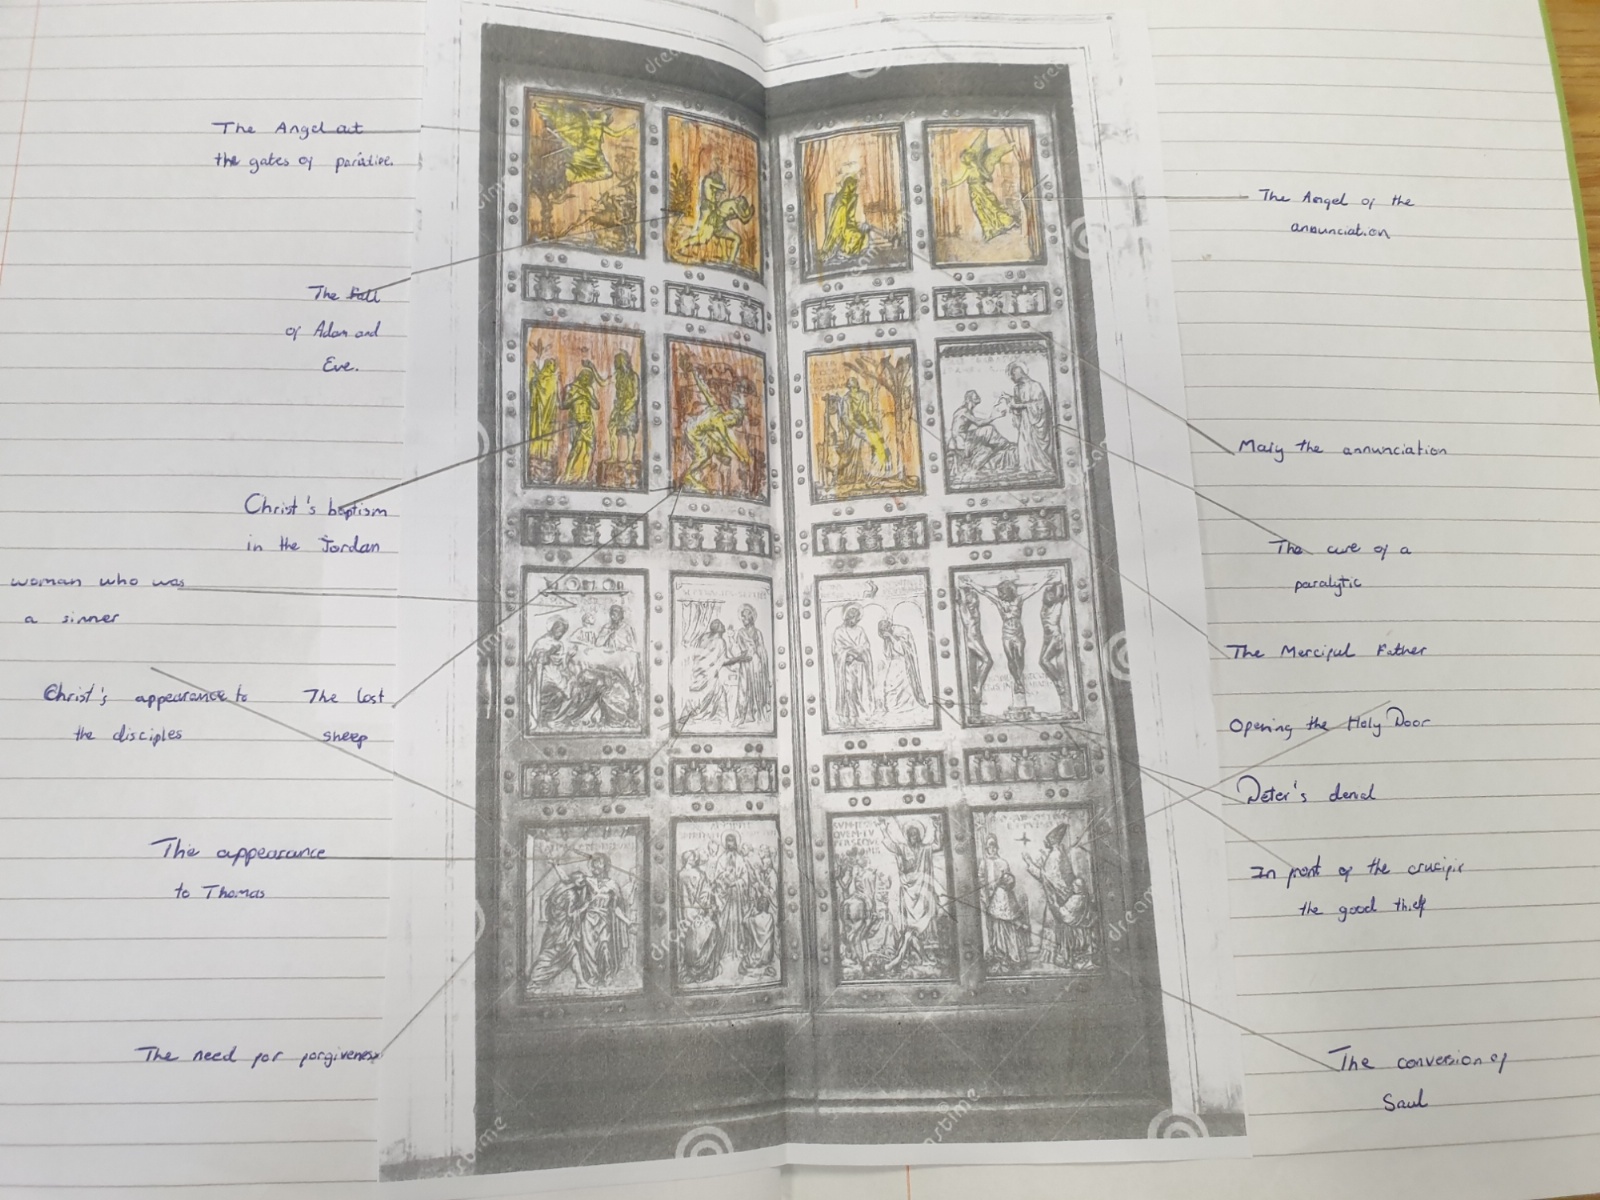 The Angel at
the gates of paradise.
The fall
of Adam and
Eve.
Christ's baptism
in the Jordan
woman who was
a sinner
Christ's appearance to
the disciples
The lost
sheep
The appearance
to Thomas
The need for forgiveness
The Angel of the
annunciation
Mary the annunciation
The cure of a
paralytic
The Merciful Father
Opening the Holy Door
Peter's denal
In front of the crucifix
the good thief
The conversion of
Saul
dreamstime